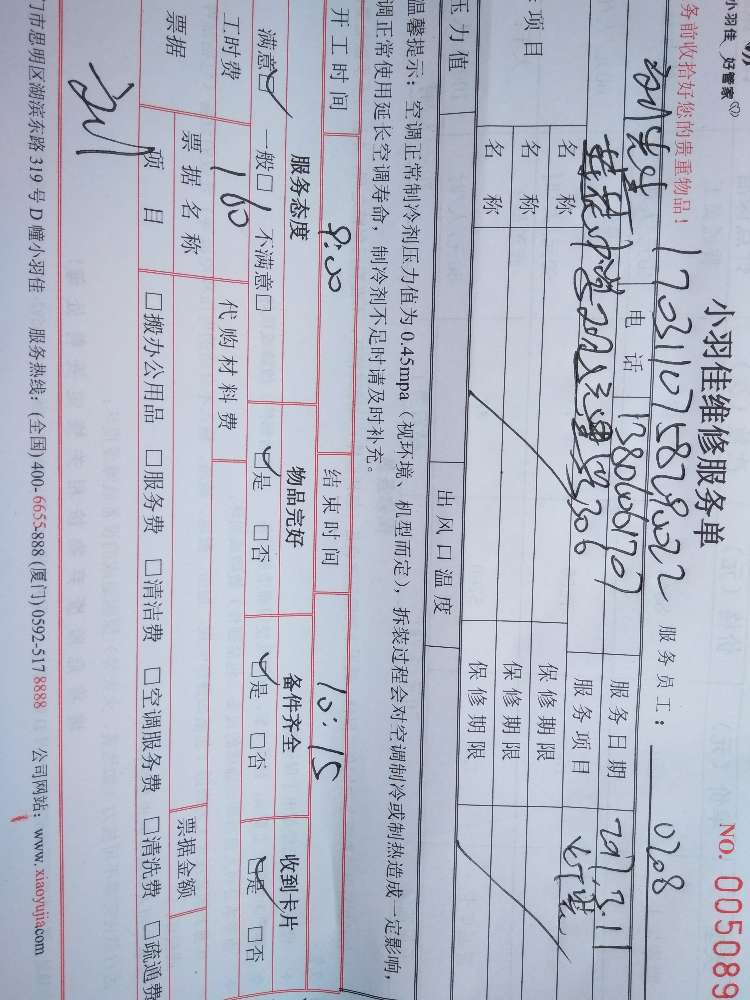 小羽佳 好管家
小羽佳维修服务单
NO. 005089
务前收拾好您的贵重物品！
17031107582902022 服务员工： 0208
电话 服务日期 2017.3.11
服务项目
项目 名称 保修期限
名称 保修期限
名称 保修期限
压力值 出风口温度
温馨提示：空调正常制冷剂压力值为0.45mpa（视环境、机型而定），拆装过程会对空调制冷或制热造成一定影响，
调正常使用延长空调寿命，制冷剂不足时请及时补充。
开工时间 9:00 结束时间 10:15
服务态度 物品完好 备件齐全 收到卡片
满意☑ 一般□ 不满意□ ☑是 □否 ☑是 □否 ☑是 □否
工时费 160 代购材料费
票据 票据名称 票据金额
项目 □搬办公用品 □服务费 □清洁费 □空调服务费 □清洗费 □疏通费
门市思明区湖滨东路 319 号 D 幢小羽佳 服务热线：(全国) 400-6655-888 (厦门) 0592-517 8888 公司网站：www.xiaoyujia.com